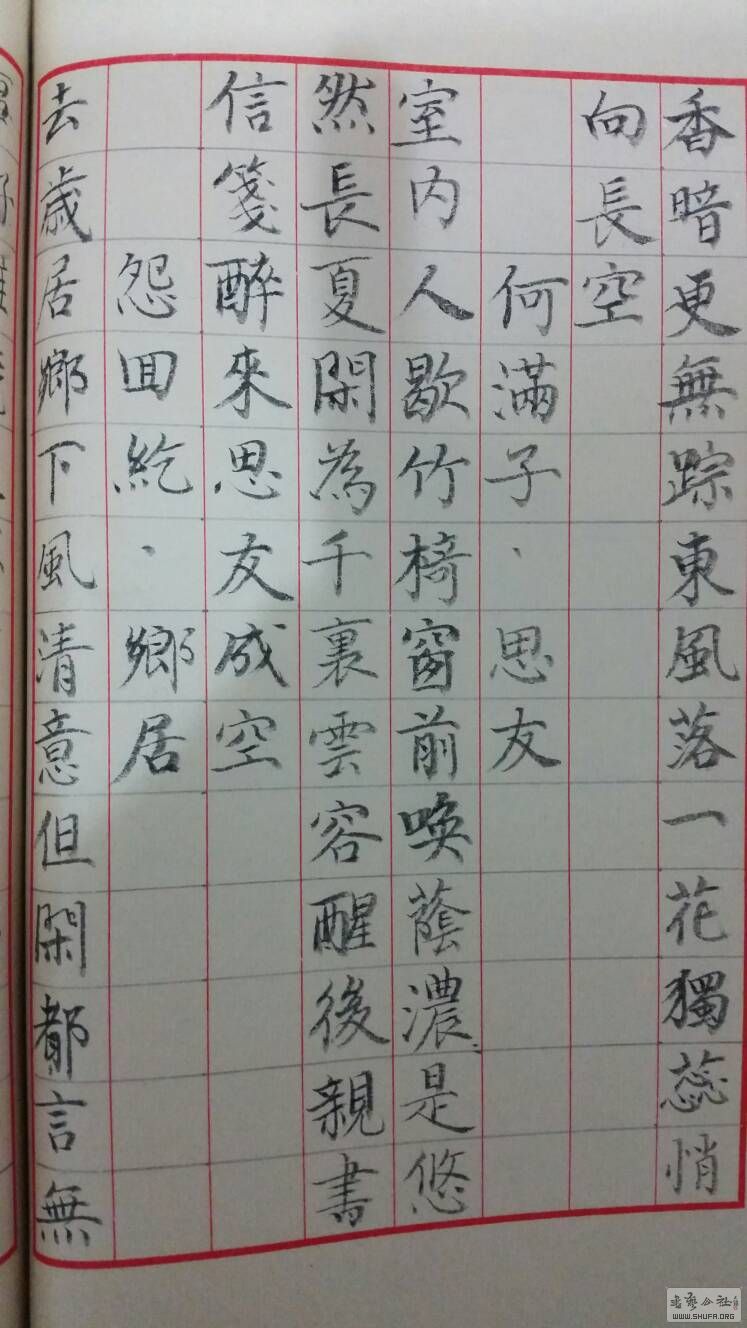 香暗更無踪東風落一花獨蕊悄
向長空
何滿子·思友
室内人歇竹椅窗前喚蔭濃是悠
然長夏閑為千裏雲容醒後親書
信箋醉來思友成空
怨回紇·鄉居
去歲居鄉下風清意但閑都言無
WWW.SHUFA.ORG